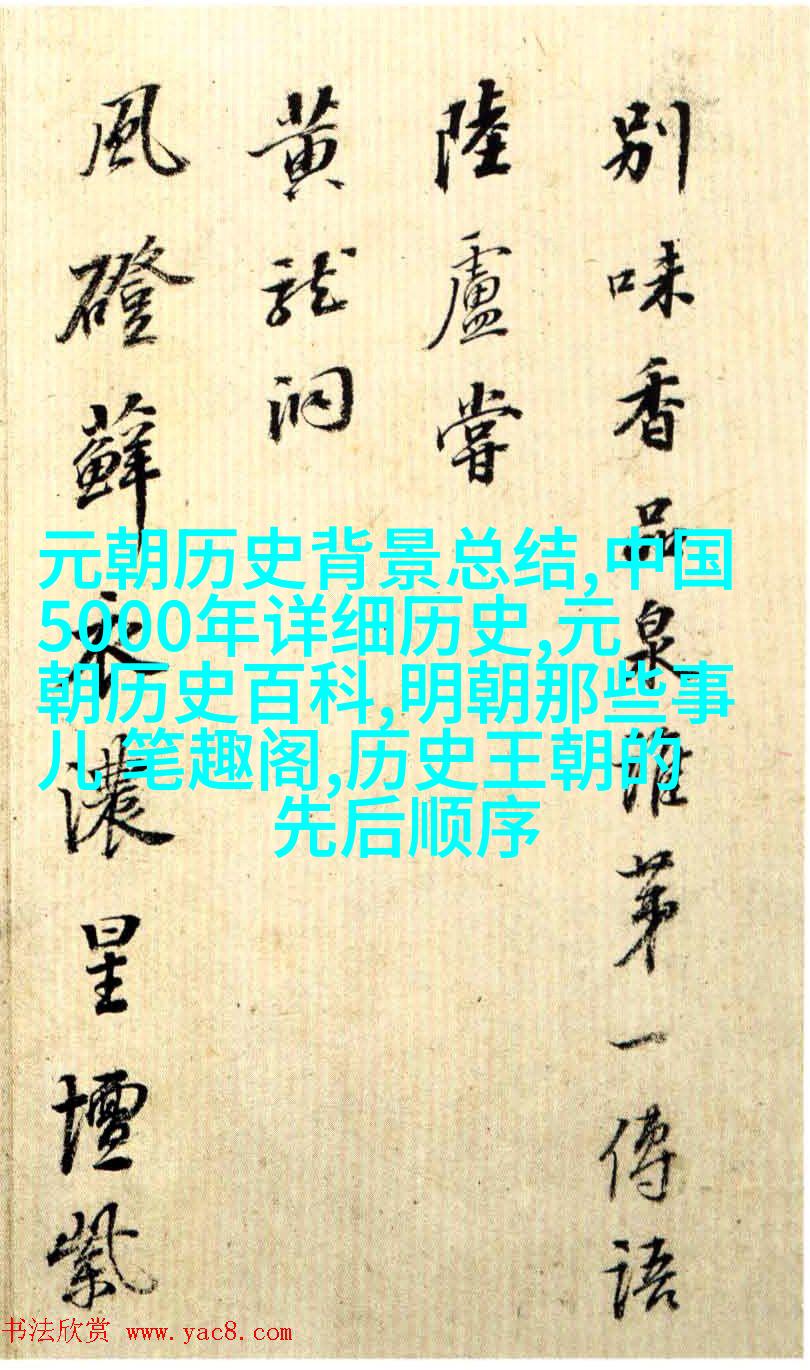 別味香品泉誰第一傳語
陸盧嘗
黃龍洞
風磴蘚衣濃星壇紫
元朝历史背景总结,中国
5000年详细历史,元
朝历史百科,明朝那些事
儿 笔趣阁,历史王朝的
先后顺序
书法欣赏 www.yac8.com